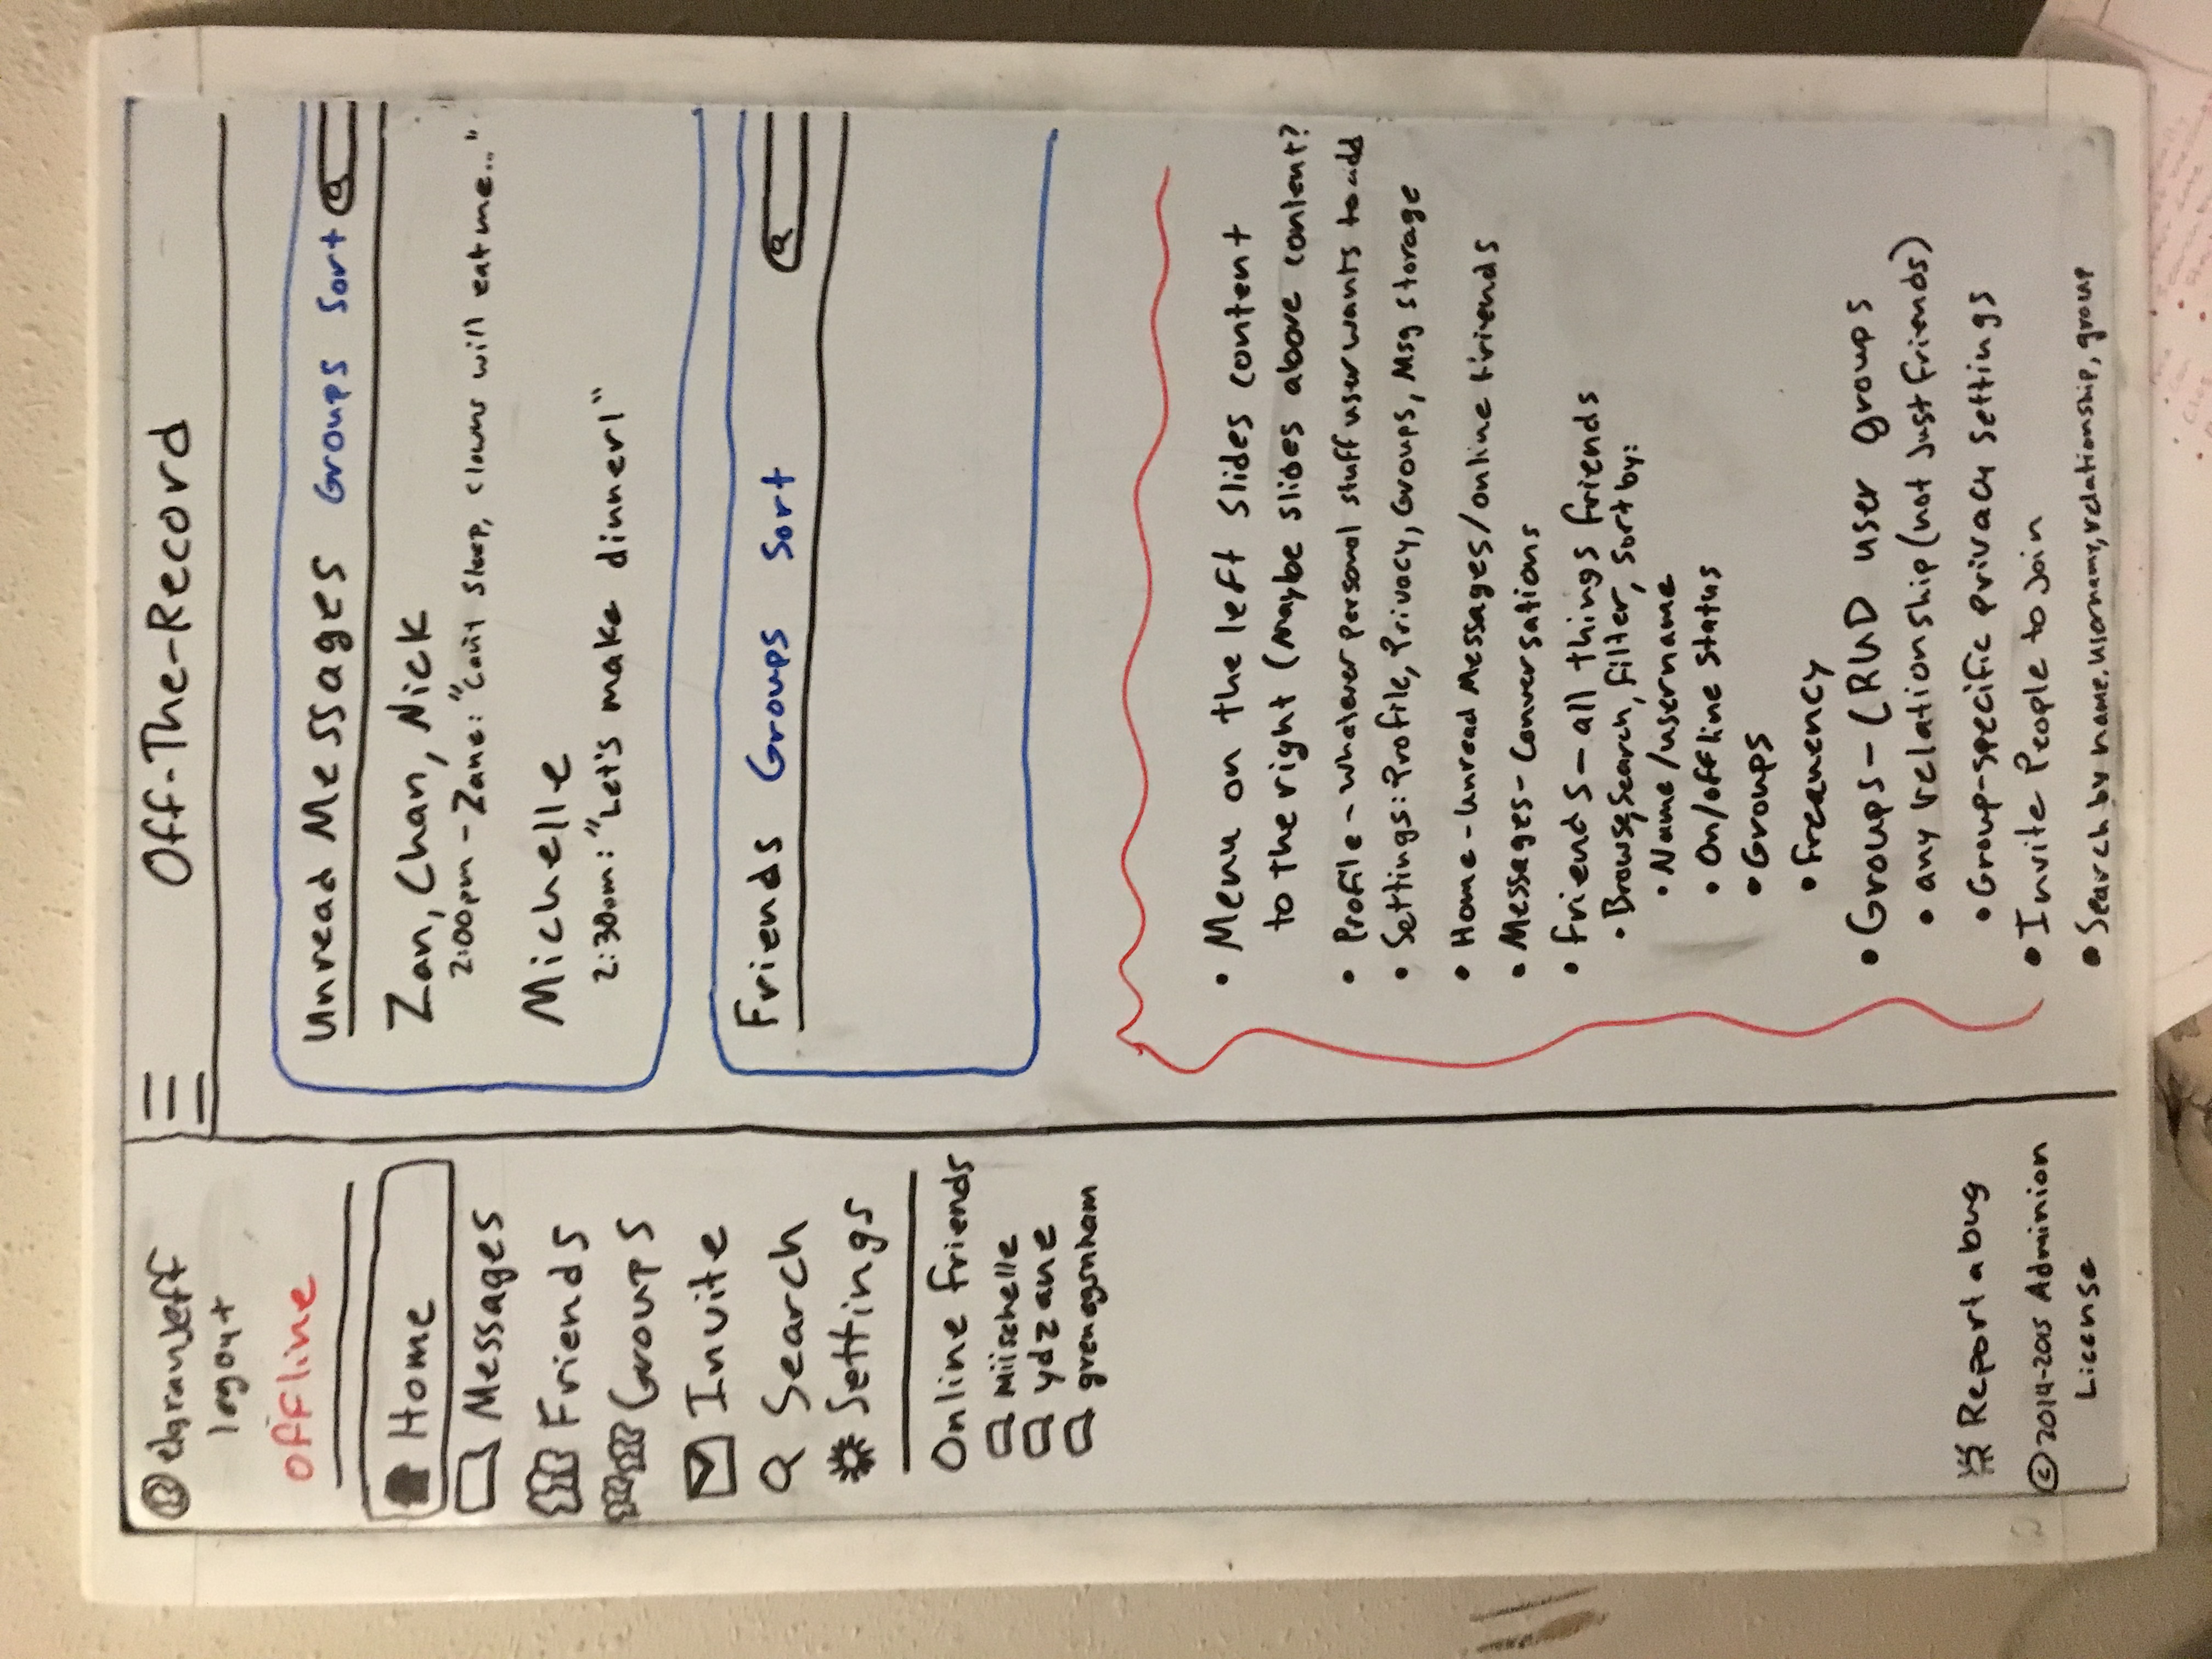 elgranjeff
logout
offline
Home
Messages
Friends
Groups
Invite
Search
Settings
Online friends
Miischelle
ydzane
grenegsnham
Report a bug
© 2014-2015 Adminion
License
Off-The-Record
Unread Messages Groups Sort
Zan, Chan, Nick
2:00pm - Zane: "Can't sleep, clowns will eat me..."
Michelle
2:30pm: "Let's make dinner!"
Friends Groups Sort
• Menu on the left slides content
to the right (Maybe slides above content?
• Profile - whatever personal stuff user wants to add
• Settings: Profile, Privacy, Groups, Msg storage
• Home - Unread Messages/online friends
• Messages - Conversations
• Friends - all things friends
• Browse, Search, filter, sort by:
• Name/username
• On/offline status
• Groups
• Frequency
• Groups - CRUD user groups
• any relationship (not just friends)
• Group-specific privacy settings
• Invite People to join
• Search by name, username, relationship, group